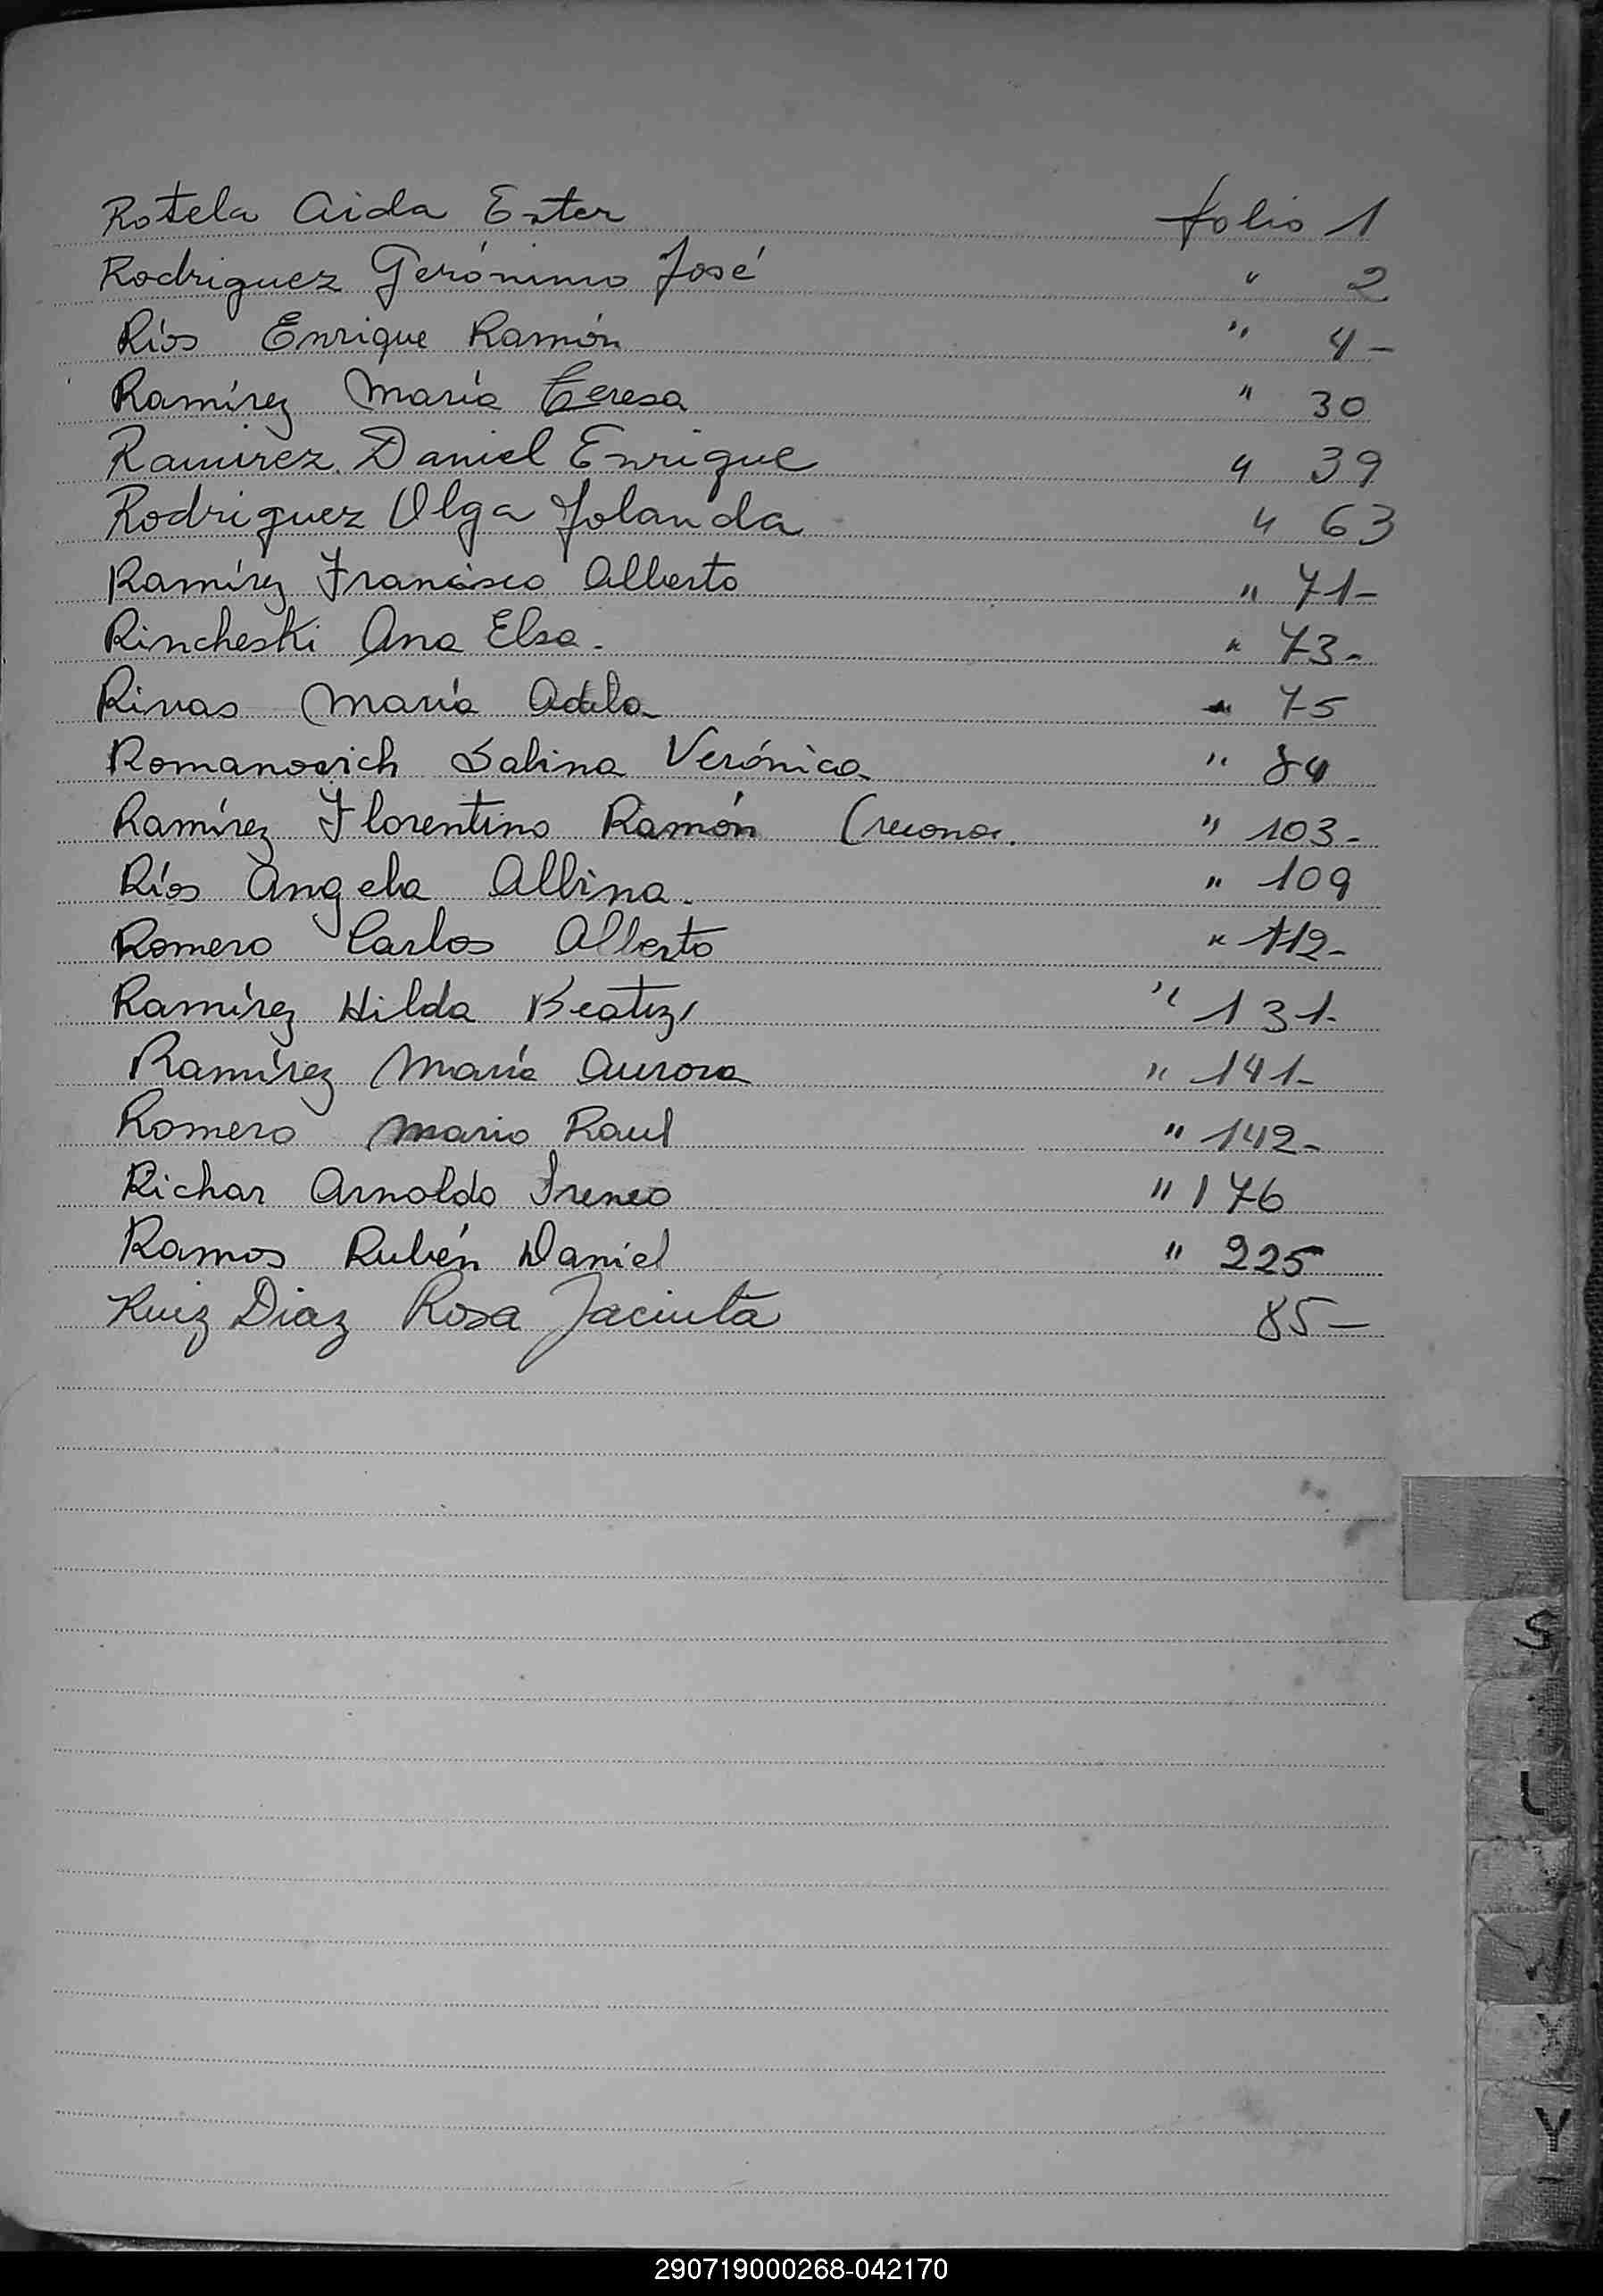 Rotela Aida Ester folio 1
Rodriguez Gerónimo José " 2
Ríos Enrique Ramón " 4-
Ramírez María Teresa " 30
Ramirez Daniel Enrique " 39
Rodriguez Olga Yolanda " 63
Ramírez Francisco Alberto " 71-
Rincheski Ana Elsa. " 73-
Rivas María Adela " 75
Romanovich Sabina Verónica " 84
Ramírez Florentino Ramón (reconoc. " 103-
Ríos Angela Albina. " 109
Romero Carlos Alberto " 112-
Ramírez Hilda Beatriz " 131-
Ramírez María Aurora " 141-
Romero Mario Raul " 142-
Richar Arnoldo Ireneo " 176
Ramos Rubén Daniel " 225
Ruiz Diaz Rosa Jacinta 85-
S
X
Y
290719000268-042170